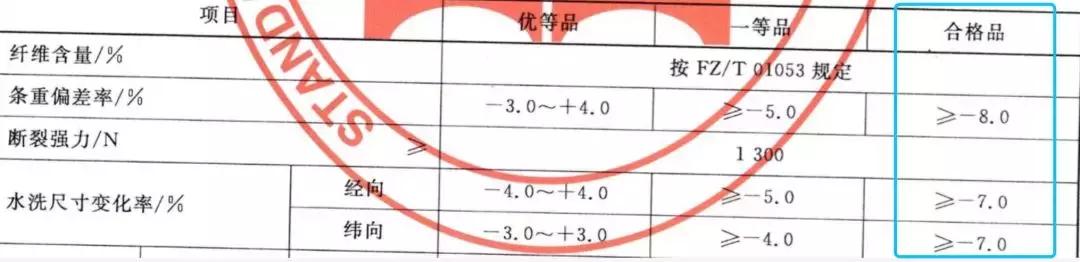 项目 优等品 一等品 合格品
纤维含量/% 按 FZ/T 01053 规定
条重偏差率/% -3.0～+4.0 ≥-5.0 ≥-8.0
断裂强力/N ≥ 1 300
水洗尺寸变化率/% 经向 -4.0～+4.0 ≥-5.0 ≥-7.0
纬向 -3.0～+3.0 ≥-4.0 ≥-7.0
STAND